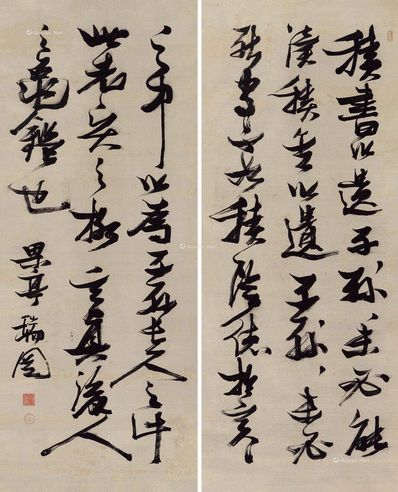 積書以遺子孫、未必能
讀積金以遺子孫、未必
能守不如積陰德於冥、
之中以為子孫長久之計
此之格言後人
之龜鑑也
果亭瑞圖
Artron.Net